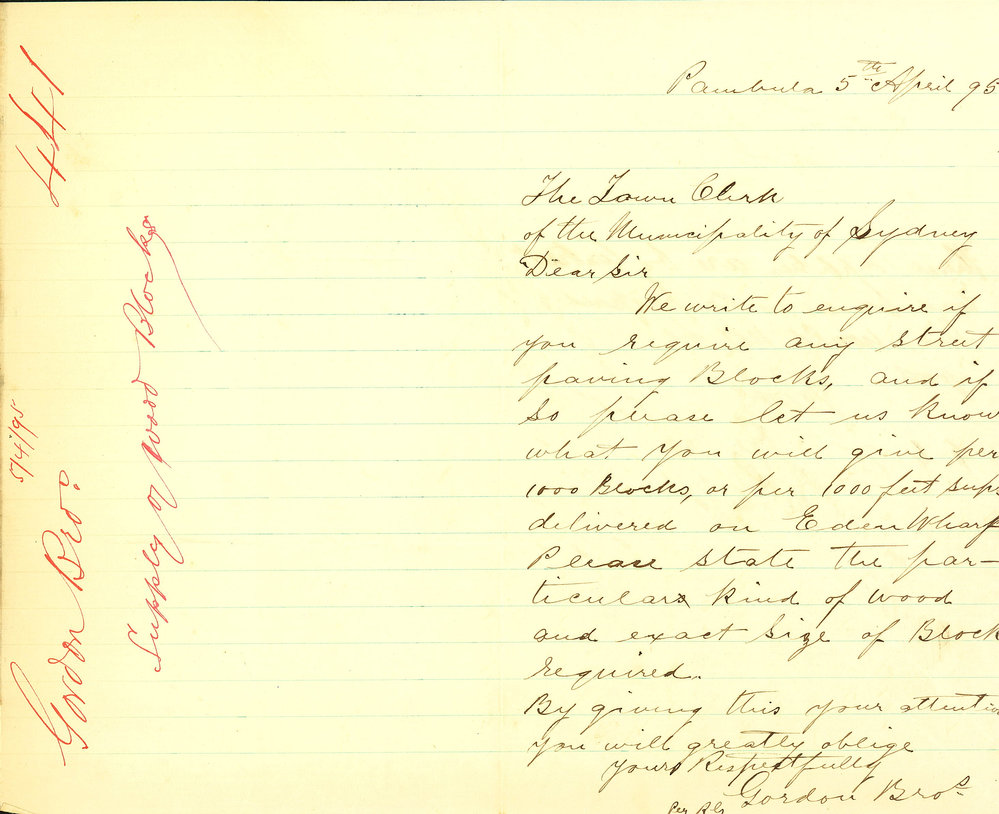 441
Gordon Bros
5/4/95
Supply of Wood Blocks
Pambula 5th April 95
The Town Clerk
of the Municipality of Sydney
Dear Sir
We write to enquire if
you require any street
paving Blocks, and if
so please let us know
what you will give per
1000 Blocks, or per 1000 feet sup.
delivered on Eden Wharf
Please state the par-
ticular kind of wood
and exact size of Block
required.
By giving this your attention
you will greatly oblige
Yours Respectfully
Gordon Bros
Per